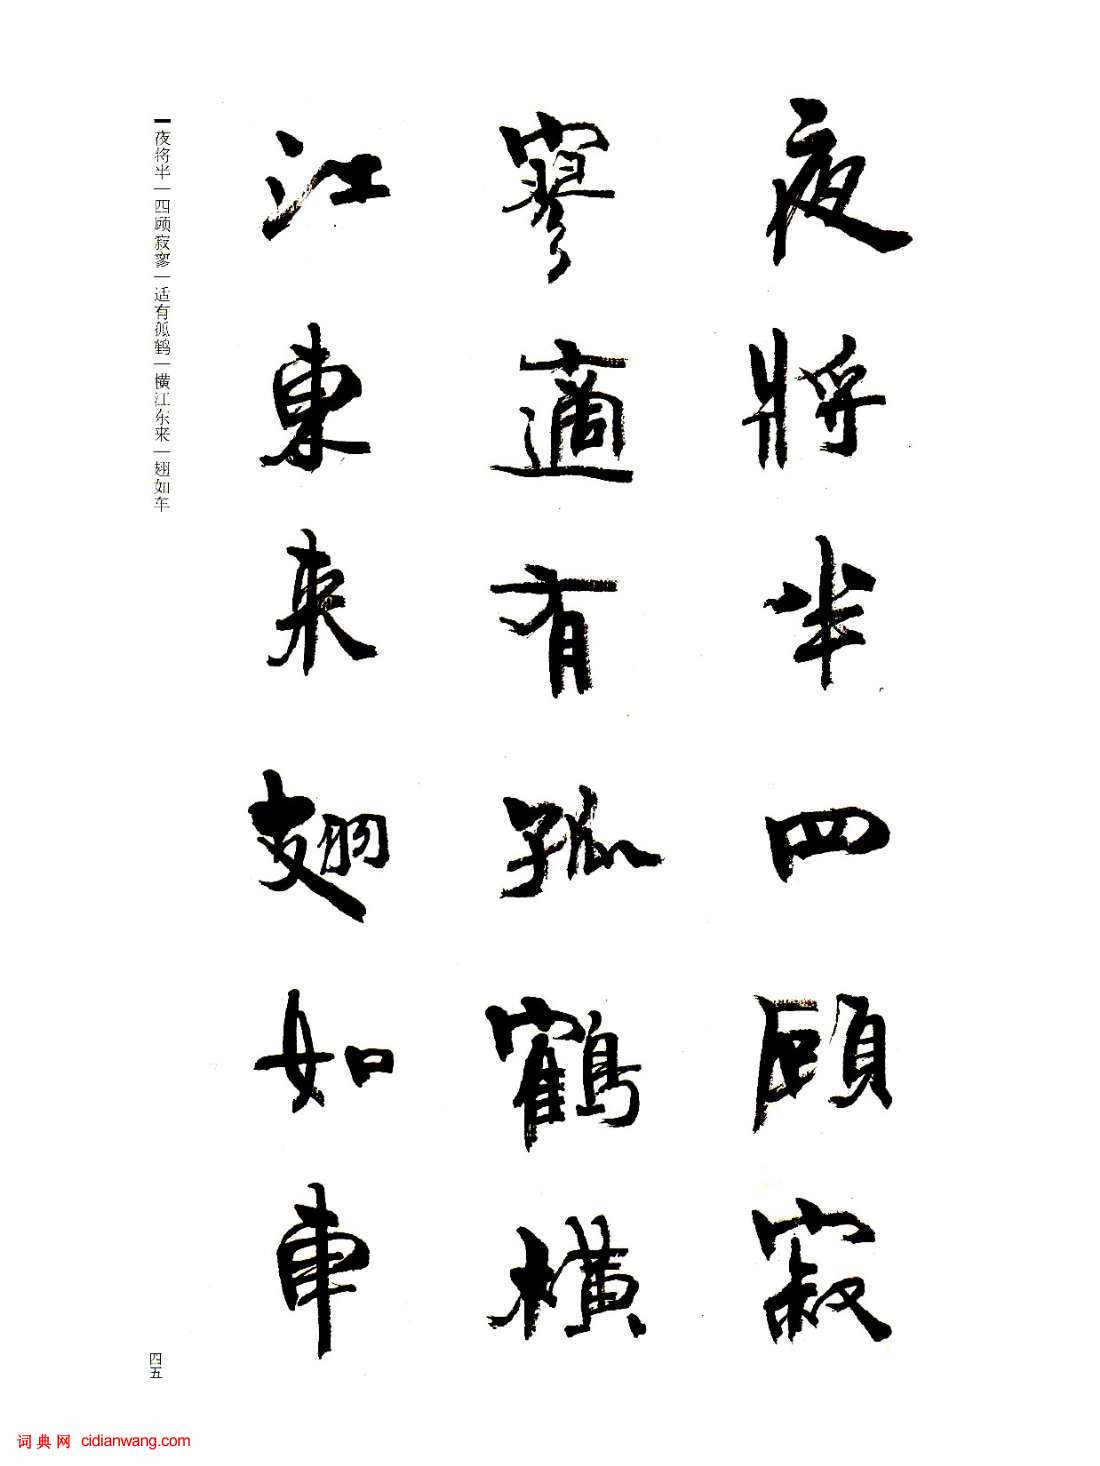 夜將半四顧寂
寥適有孤鶴橫
江東來翅如車
夜将半|四顾寂寥|适有孤鹤|横江东来|翅如车
四五
词典网 cidianwang.com